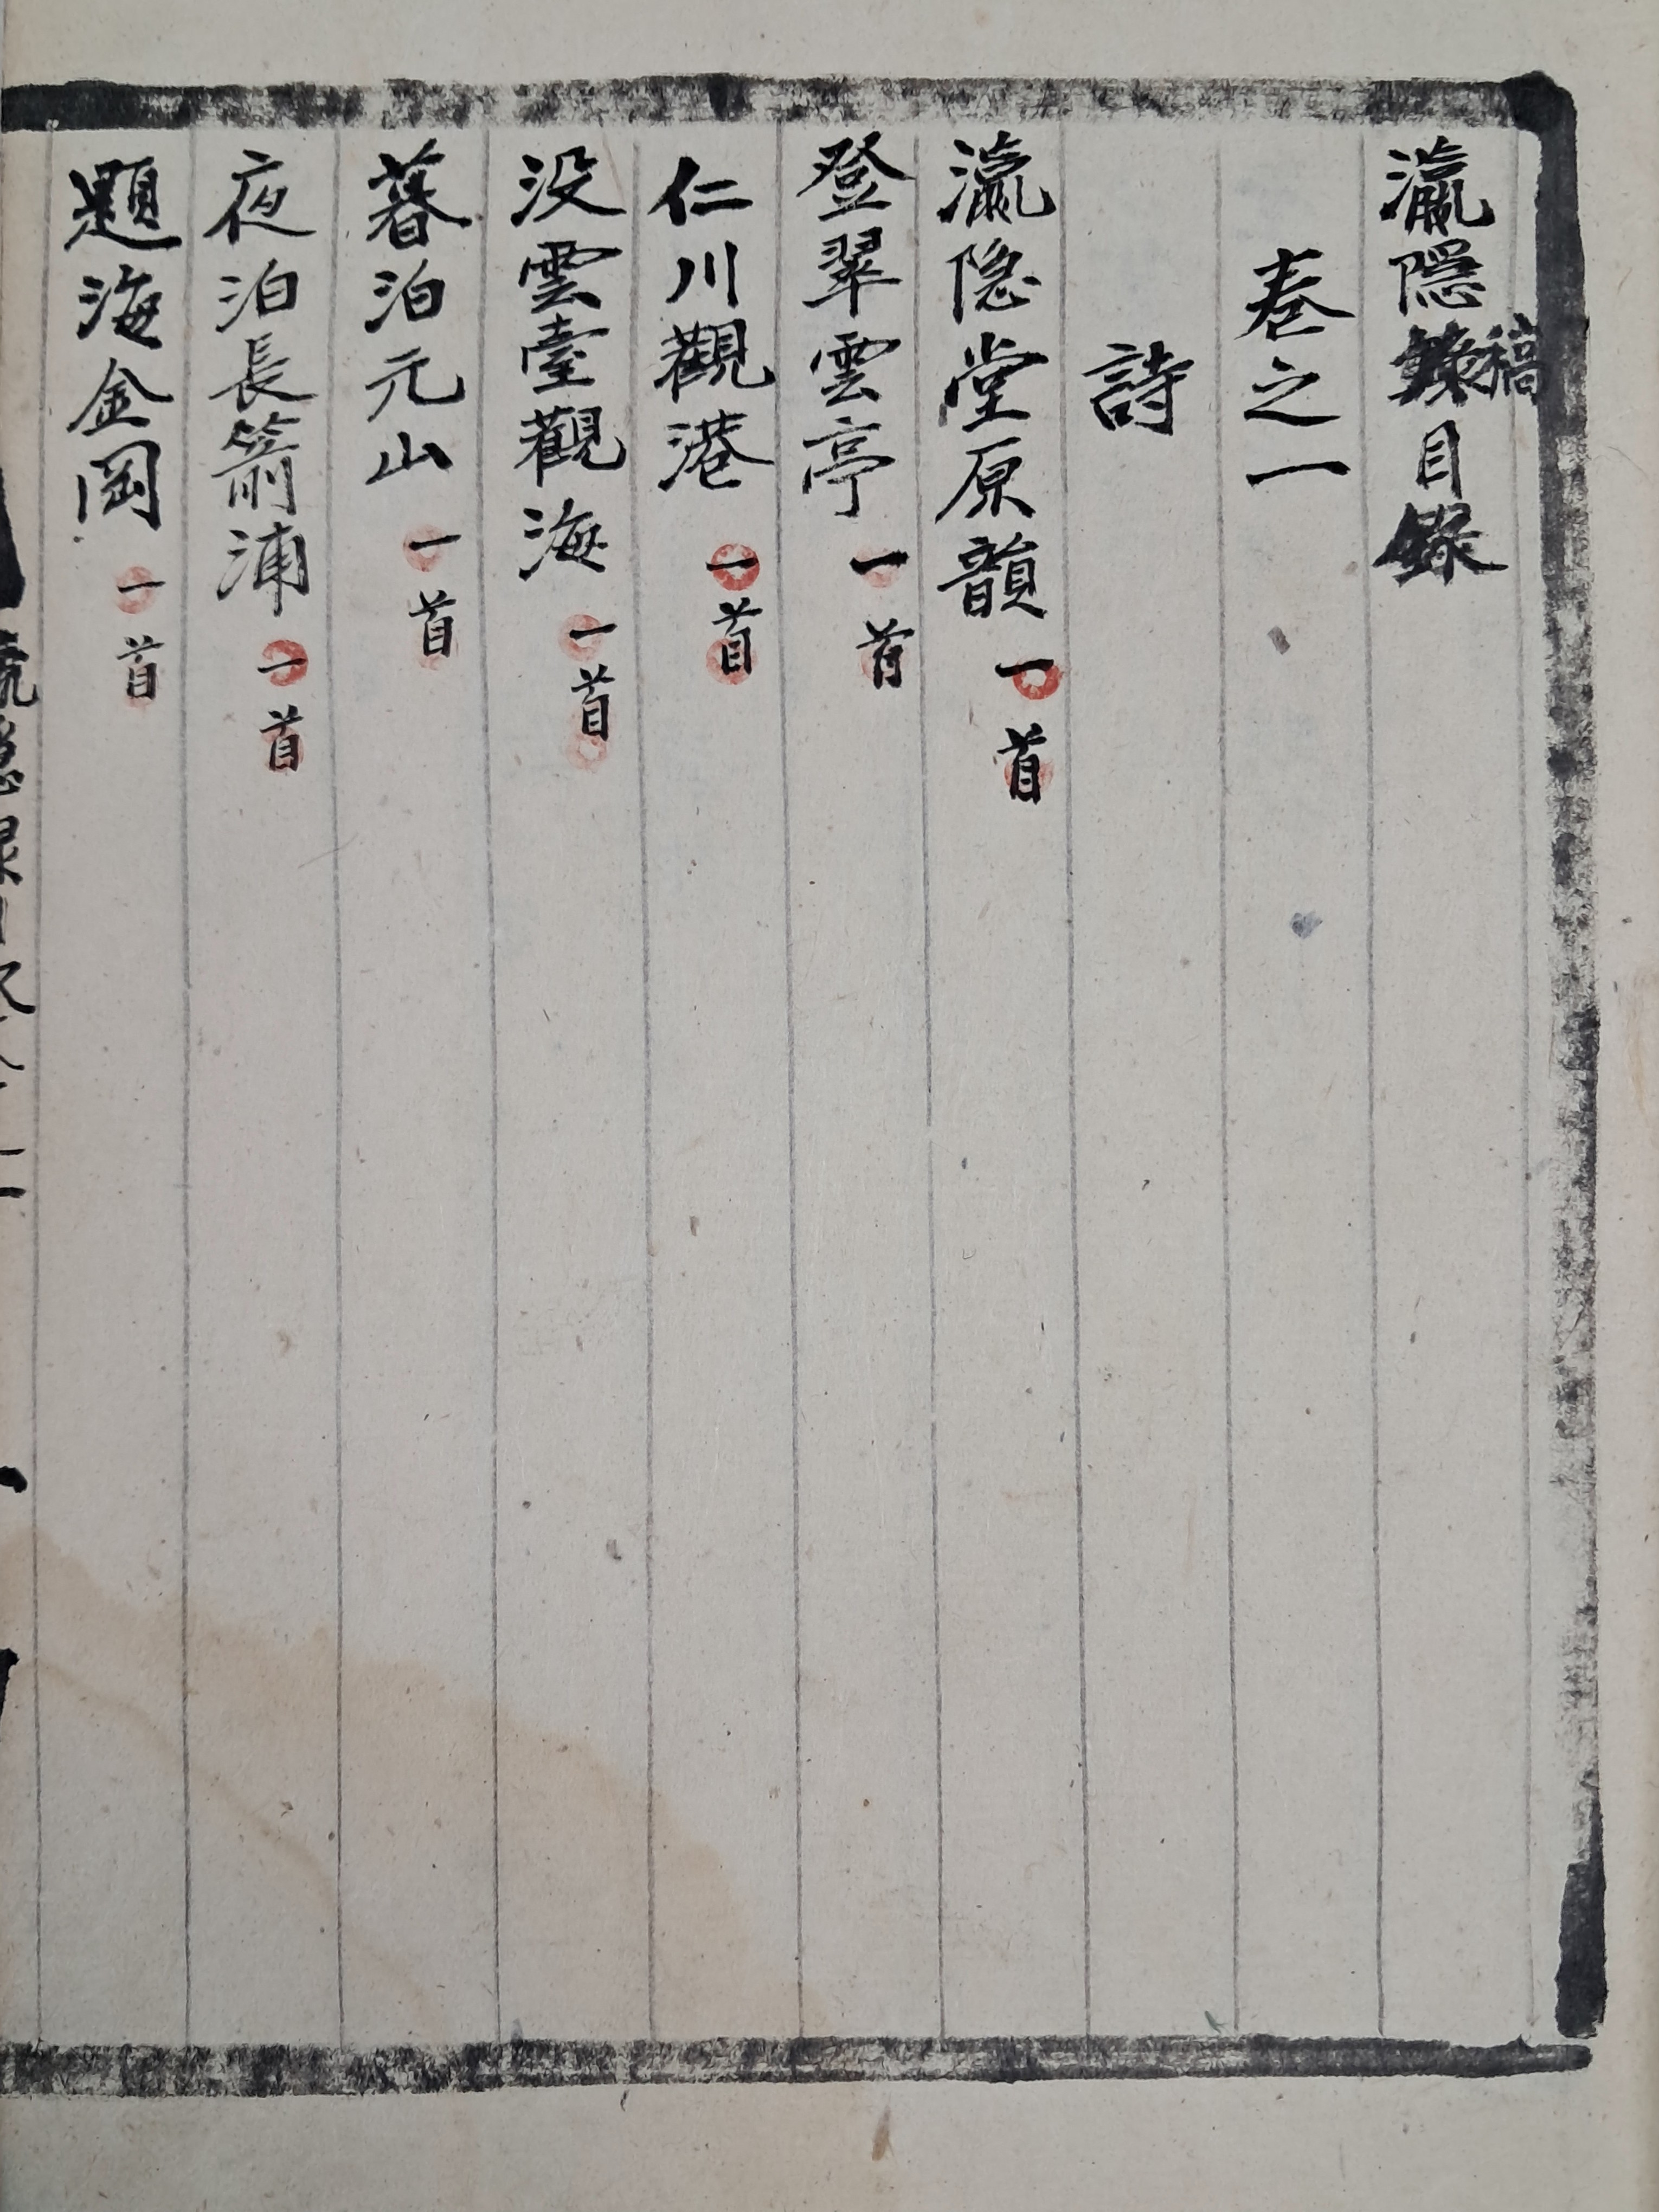 瀛隱稿目錄
卷之一
詩
瀛隐堂原韻 一首
登翠雲亭 一首
仁川觀港 一首
没雲臺觀海 一首
暮泊元山 一首
夜泊長箭浦 一首
題海金罡 一首